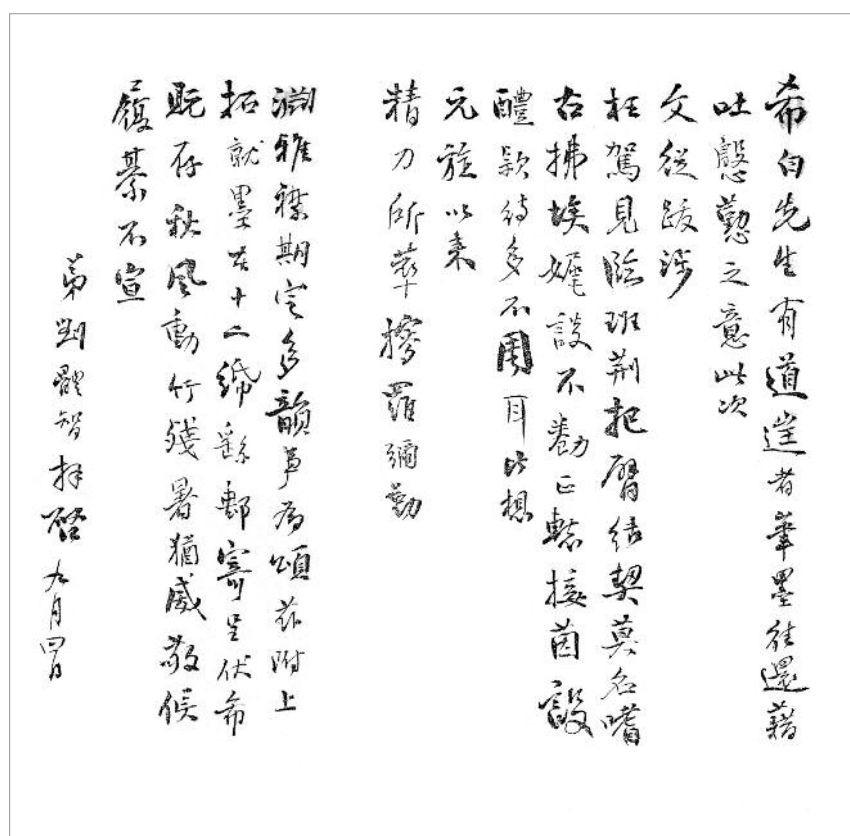 希白先生有道遌者筆墨往還藉
吐慇懃之意此次
文從跋涉
枉駕見臨班荆把臂結契莫名嗜
古拂埃娓談不勌正轄接茵設
醴款待多不周耳比想
元旋以來
精力所萃撏羅彌勤
淵雅襟期定多韻事為頌茲附上
拓就墨本十二紙郵寄呈伏希
眂存秋風動竹殘暑猶威敬候
履綦不宣
弟劉體智拜啓九月四日